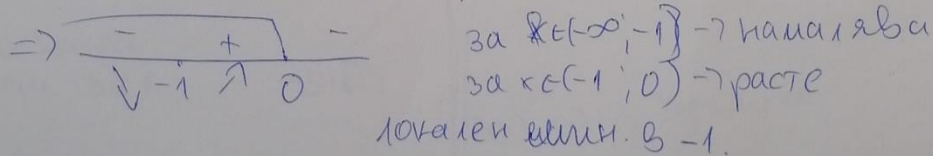 => - + - за x∈(-∞; -1) -> намалява
↘ -1 ↗ 0 за x∈(-1; 0) -> расте
локален мин. в -1.